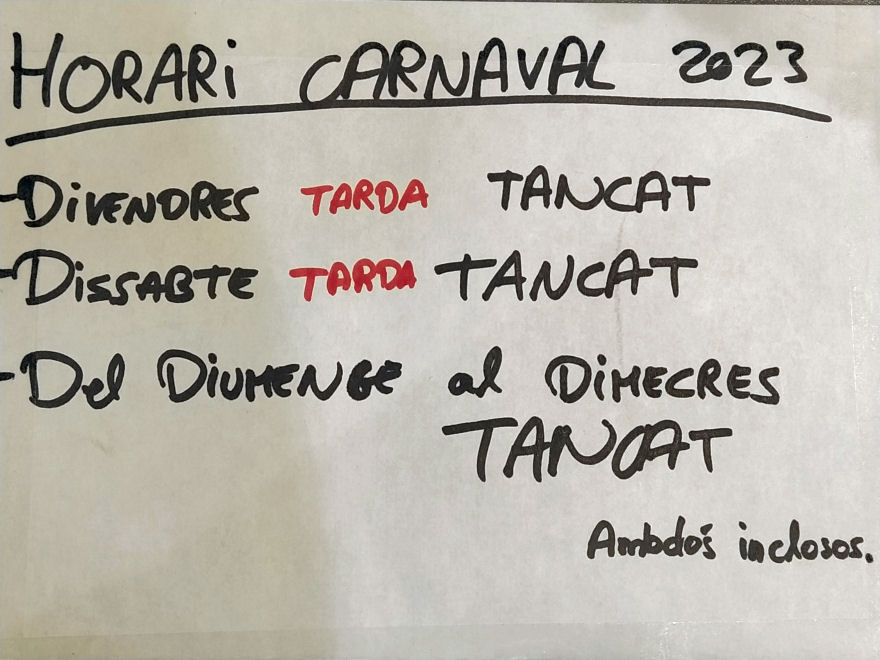 HORARi CARNAVAL 2023
- DiVENDRES TARDA TANCAT
- DiSSABTE TARDA TANCAT
- Del DiUMENGE al DiMECRES
TANCAT
Ambdós inclosos.